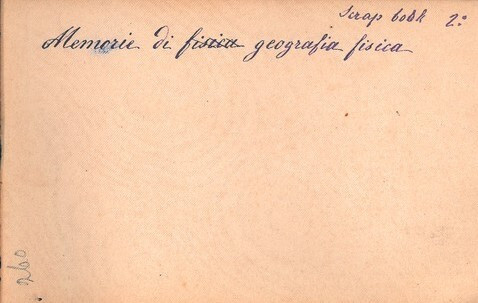 Scrap book 2:
Memorie di fisica geografia fisica
260